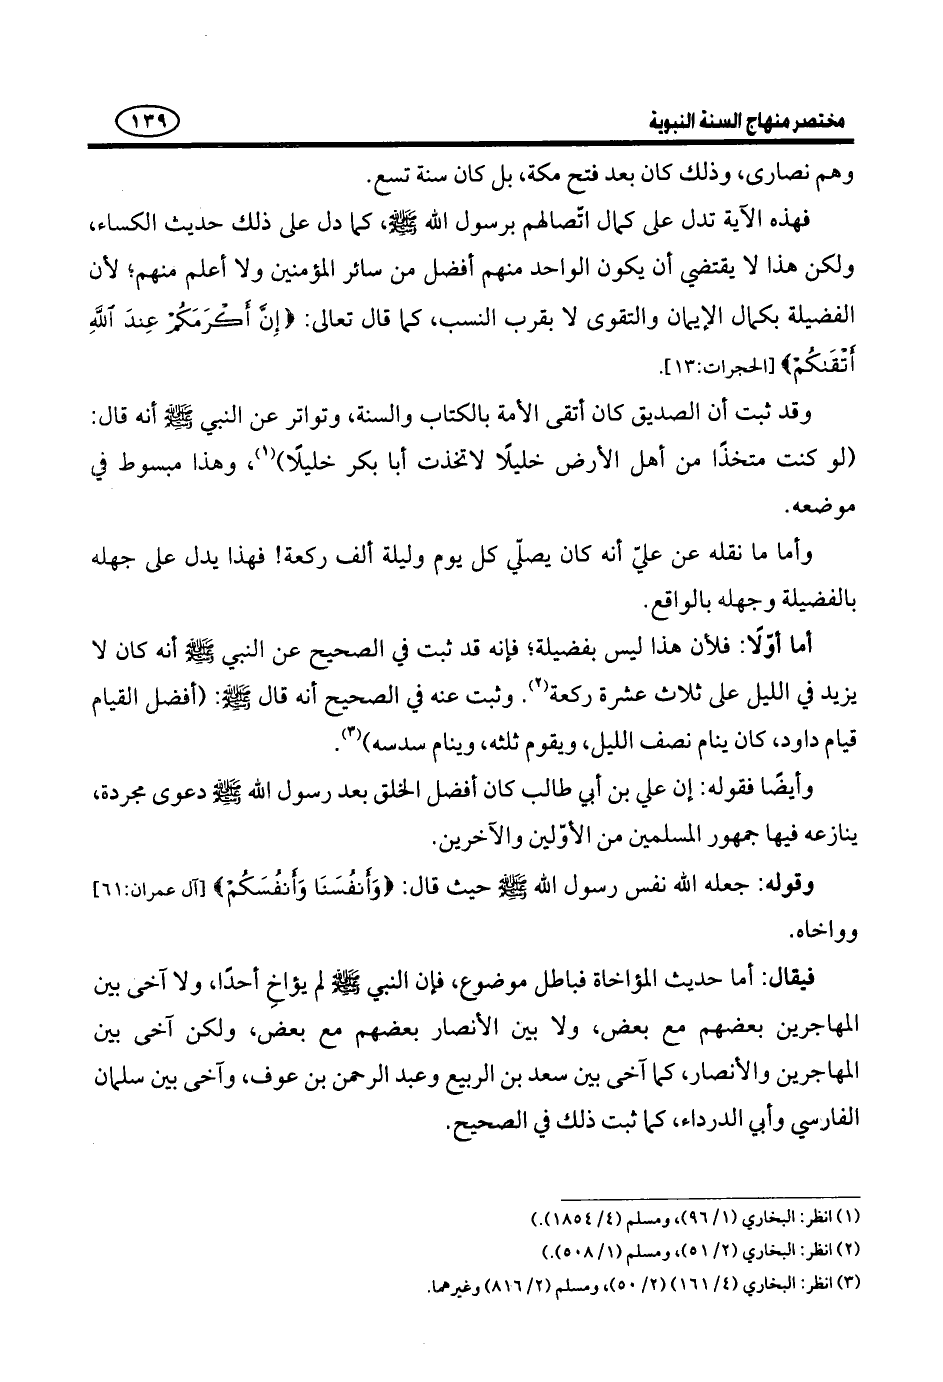 مختصر منهاج السنة النبوية
١٣٩
وهم نصارى، وذلك كان بعد فتح مكة، بل كان سنة تسع.
فهذه الآية تدل على كمال اتّصالهم برسول الله ﷺ، كما دل على ذلك حديث الكساء،
ولكن هذا لا يقتضي أن يكون الواحد منهم أفضل من سائر المؤمنين ولا أعلم منهم؛ لأن
الفضيلة بكمال الإيمان والتقوى لا بقرب النسب، كما قال تعالى: ﴿إِنَّ أَكْرَمَكُمْ عِندَ ٱللَّهِ
أَتْقَىٰكُمْ﴾ [الحجرات:١٣].
وقد ثبت أن الصديق كان أتقى الأمة بالكتاب والسنة، وتواتر عن النبي ﷺ أنه قال:
(لو كنت متخذًا من أهل الأرض خليلًا لاتخذت أبا بكر خليلًا)(١)، وهذا مبسوط في
موضعه.
وأما ما نقله عن عليّ أنه كان يصلّي كل يوم وليلة ألف ركعة! فهذا يدل على جهله
بالفضيلة وجهله بالواقع.
أما أوّلًا: فلأن هذا ليس بفضيلة؛ فإنه قد ثبت في الصحيح عن النبي ﷺ أنه كان لا
يزيد في الليل على ثلاث عشرة ركعة(٢). وثبت عنه في الصحيح أنه قال ﷺ: (أفضل القيام
قيام داود، كان ينام نصف الليل، ويقوم ثلثه، وينام سدسه)(٣).
وأيضًا فقوله: إن علي بن أبي طالب كان أفضل الخلق بعد رسول الله ﷺ دعوى مجردة،
ينازعه فيها جمهور المسلمين من الأوّلين والآخرين.
وقوله: جعله الله نفس رسول الله ﷺ حيث قال: ﴿وَأَنفُسَنَا وَأَنفُسَكُمْ﴾ [آل عمران:٦١]
وواخاه.
فيقال: أما حديث المؤاخاة فباطل موضوع، فإن النبي ﷺ لم يؤاخِ أحدًا، ولا آخى بين
المهاجرين بعضهم مع بعض، ولا بين الأنصار بعضهم مع بعض، ولكن آخى بين
المهاجرين والأنصار، كما آخى بين سعد بن الربيع وعبد الرحمن بن عوف، وآخى بين سلمان
الفارسي وأبي الدرداء، كما ثبت ذلك في الصحيح.
(١) انظر: البخاري (١/ ٩٦)، ومسلم (٤/ ١٨٥٤).)
(٢) انظر: البخاري (٢/ ٥١)، ومسلم (١/ ٥٠٨).)
(٣) انظر: البخاري (٤/ ١٦١) (٢/ ٥٠)، ومسلم (٢/ ٨١٦) وغيرهما.